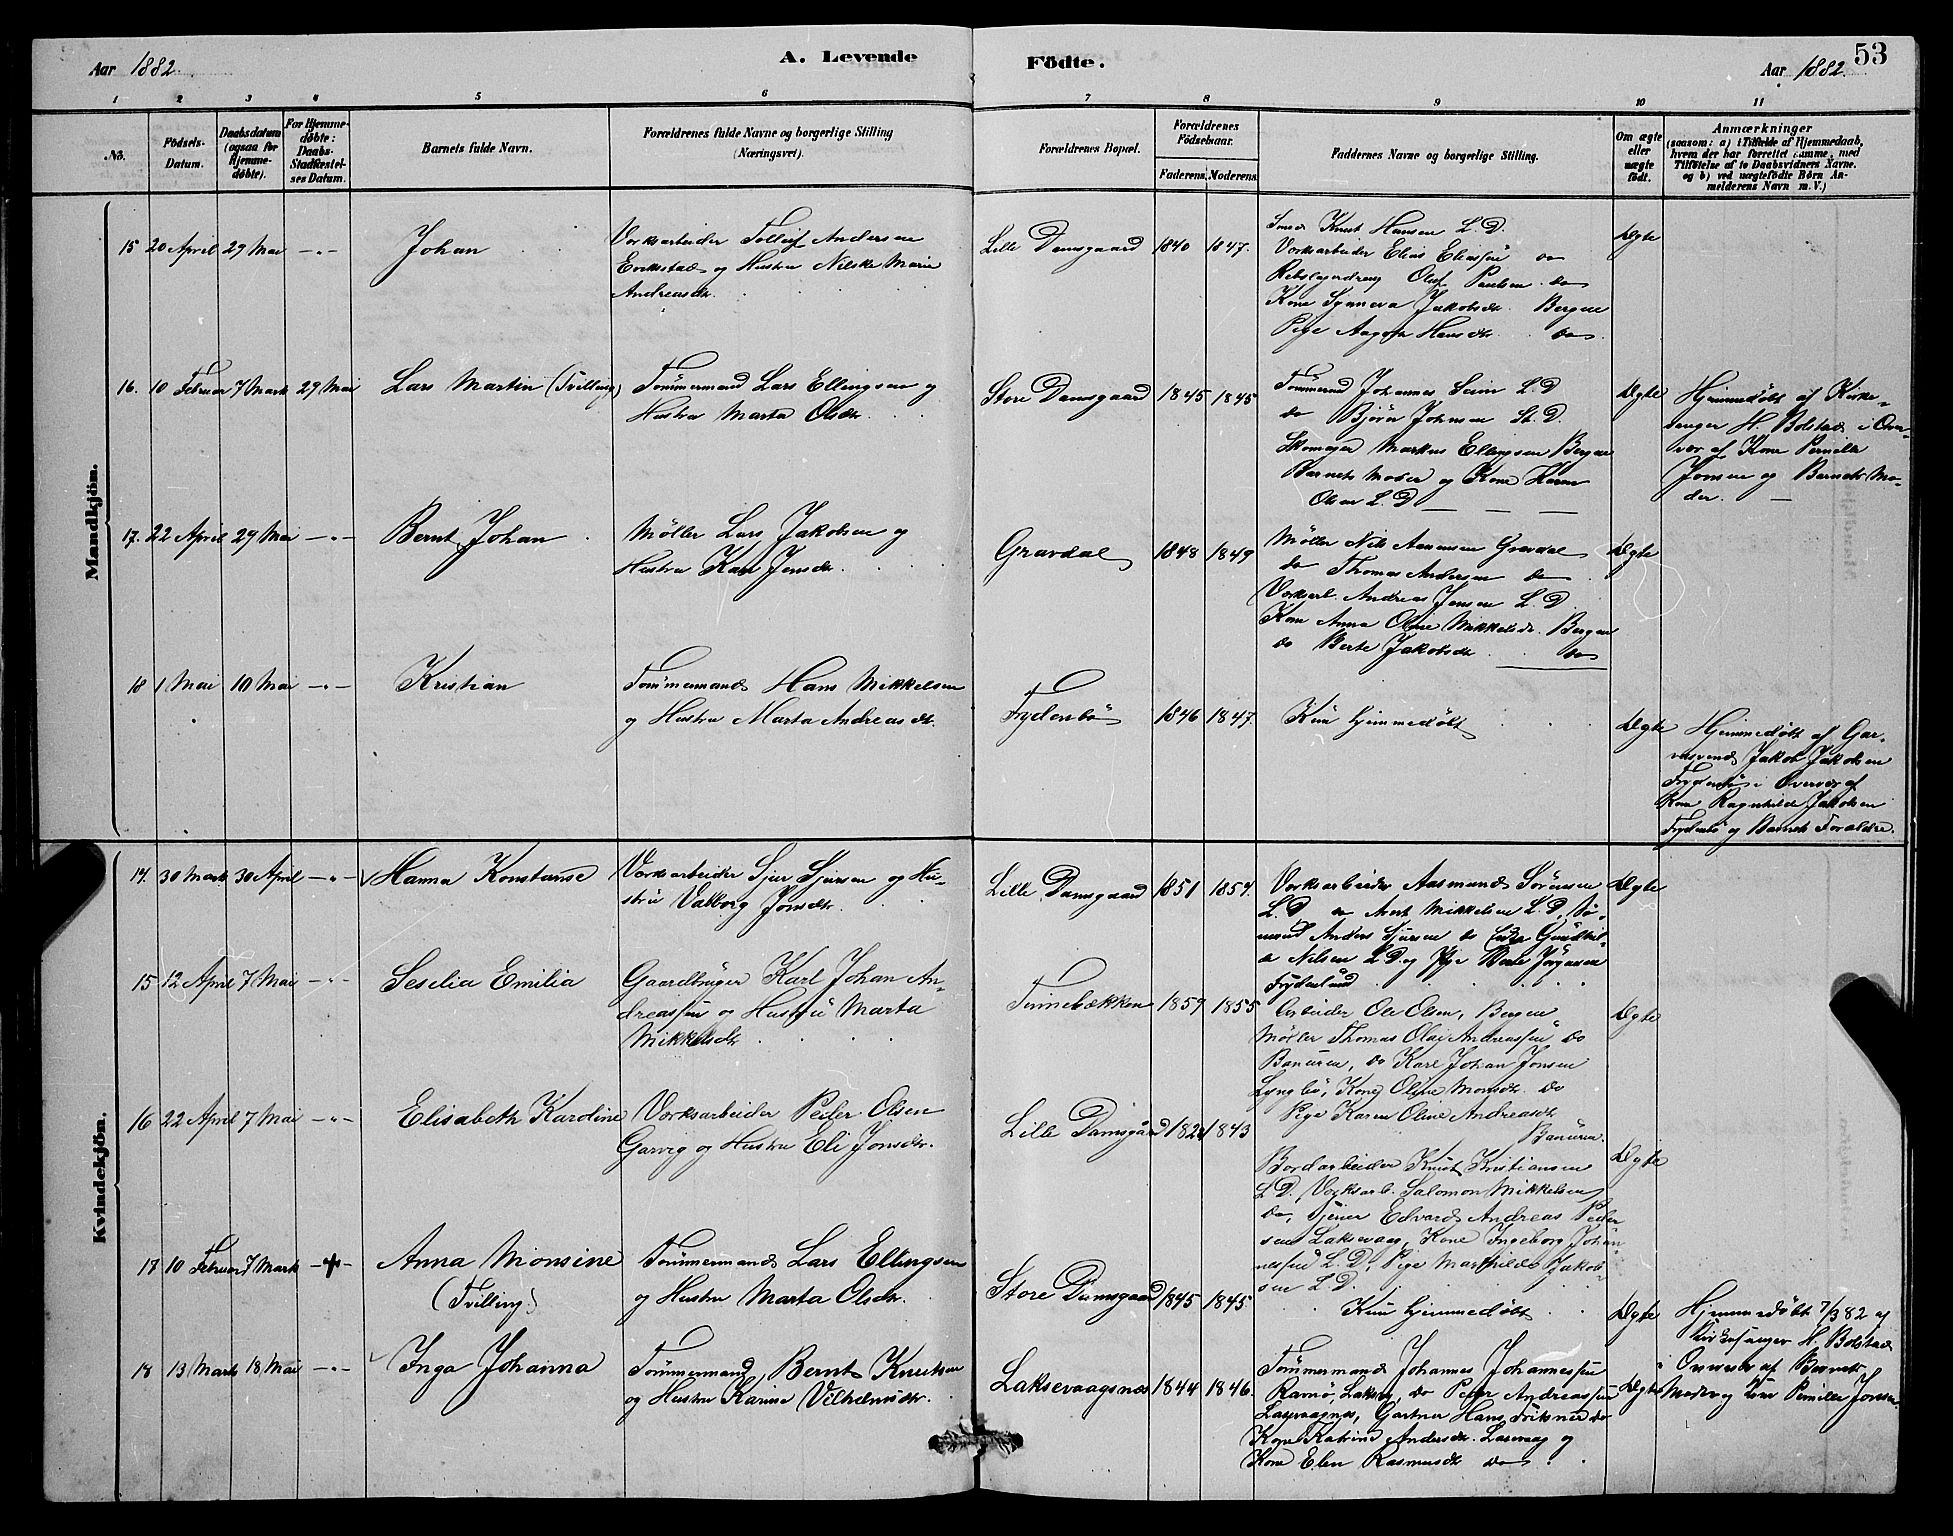 53
Aar 1882.
A. Levende
Födte.
Aar 1882.
1 2 3 4 5 6 7 8 9 10 11
No.
Födsels-
Datum.
Daabsdatum
(ogsaa for
Hjemme-
döbte).
For Hjemme-
döbte:
Daabs-
Stadfæstel-
ses Datum.
Barnets fulde Navn.
Forældrenes fulde Navne og borgerlige Stilling
(Næringsvei).
Forældrenes Bopæl.
Forældrenes
Födselsaar.
Faderens.
Moderens.
Faddernes Navne og borgerlige Stilling.
Om ægte
eller
uægte
født.
Anmærkninger
(saasom: a) i Tilfælde af Hjemmedaab,
hvem der har forrettet samme, med
Tilföielse af to Daabsvidners Navne.
og b) ved uægtefödte Börn An-
melderens Navn m. V.)
Mandkjön.
15 20 April 29 Mai -"- Johan
Vorksarbeider Tollef Andersen
Evikstad og Hustru Nilske Marie
Andreasdr.
Lille Damsgaard 1840 1847.
Smed Knut Hansen L.D.
Vorksarbeider Elias Eliassen do
Rebslagerdreng Oluf Paulsen do
Kone Synneva Jakobsdr. Bergen
Pige Aagot Hansdr. do.
Ægte
16. 10 Februar 7 Mark 29 Mai Lars Martin (Tvilling)
Tømmermand Lars Ellingsen og
Hustru Marta Olsdr.
Store Damsgaard 1845 1845
Tømmermd Johannes Seim L.D.
do Bjørn Johnsen St. D.
Skomager Markus Ellingsen Bergen
Barnets Moder og Kone Karen
Olsen L.D.
Ægte
Hjemmedøbt af Kirke-
sanger H. Bolstad i Over-
vær af Kone Pernille
Jonsen og Barnets Mo-
der.
17. 22 April 29 Mai -"- Bernt Johan
Møller Lars Jakobsen og
Hustru Kari Jonsdr.
Gravdal 1848 1849
Møller Nils Aamunsen Gravdal
do Thomas Andersen do
Vorksarb. Andreas Jensen L.D.
Kone Anna Oline Mikkelsdr. Bergen
do Berte Jakobsdr. do
Ægte
18 1 Mai 10 Mai -"- Kristian
Tømmermand Hans Mikkelsen
og Hustru Marta Andreasdr.
Frydenbø 1846 1847.
Kun hjemmedøbt
Ægte
Hjemmedøbt af Gar-
versvend Jakob Jakobsen
Frydenbø i Overvær af
Kone Ragnhilde Jakobsen
Frydenbø og Barnets Forældre.
Kvindekjön.
14. 30 Mark 30 April -"- Hanna Konstanse
Vorksarbeider Sjur Sjursen og Hu-
stru Valborg Jonsdr.
Lille Damsgaard 1851 1854.
Vorksarbeider Aasmund Sørensen
L.D. do Arnt Mikkelsen L.D. Sø-
mand Anders Sjursen do Gundhil-
da Nilsen L.D. og Pige Jørgensen
Frydenlund
Ægte
15 12 April 7 Mai -"- Seselia Emilia
Gaardbruger Karl Johan An-
dreassen og Hustru Marta
Mikkelsdr.
Tennebækken 1859 1855
Arbeider Ole Olsen, Bergen
Møller Thomas Olai Andreassen do
Banuren, do Karl Johan Jonsen
Lyngbø, Kone Oline Monsdr. do
Pige Karen Oline Andreasdr.
Banuren.
Ægte
16 22 April 7 Mai -"- Elisabeth Karoline
Vorksarbeider Peder Olsen
Garvig og Hustru Eli Jonsdr.
Lille Damsgård 1843
Bordarbeider Knut Kristiansen
L.D. Vorksarb. Salomon Mikkelsen
do, Tjener Edvard Andreas Peder
sen Laksevaag, Kone Ingeborg Johan-
nessen L.D. Pige Mathilde Jakob-
sen L.D.
Ægte
17 10 Februar 7 Mark Anna Monsine
(Tvilling)
Tømmermand Lars Ellingsen
og Hustru Marta Olsdr.
Store Damsgaard 1845 1845
Kun hjemmedøbt
Ægte
Hjemmedøbt 7/3 82 af
Kirkesanger H. Bolstad
i Overvær af Barnets
Moder og Kone Pernille Jonsen
18 13 Marts 18 Mai -"- Inga Johanna
Tømmermand Bernt Knutsen
og Hustru Karine Vilhelmsdr.
Laksevaagsnæs 1844 1846.
Tømmermand Johannes Johannessen
Ramø, Laksev. do Peder Andreassen
Laxevaagnes, Gartner Hans do
Kone Katrine Andersdr. Laxevaag og
Kone Elen Rasmusdr. do
Ægte